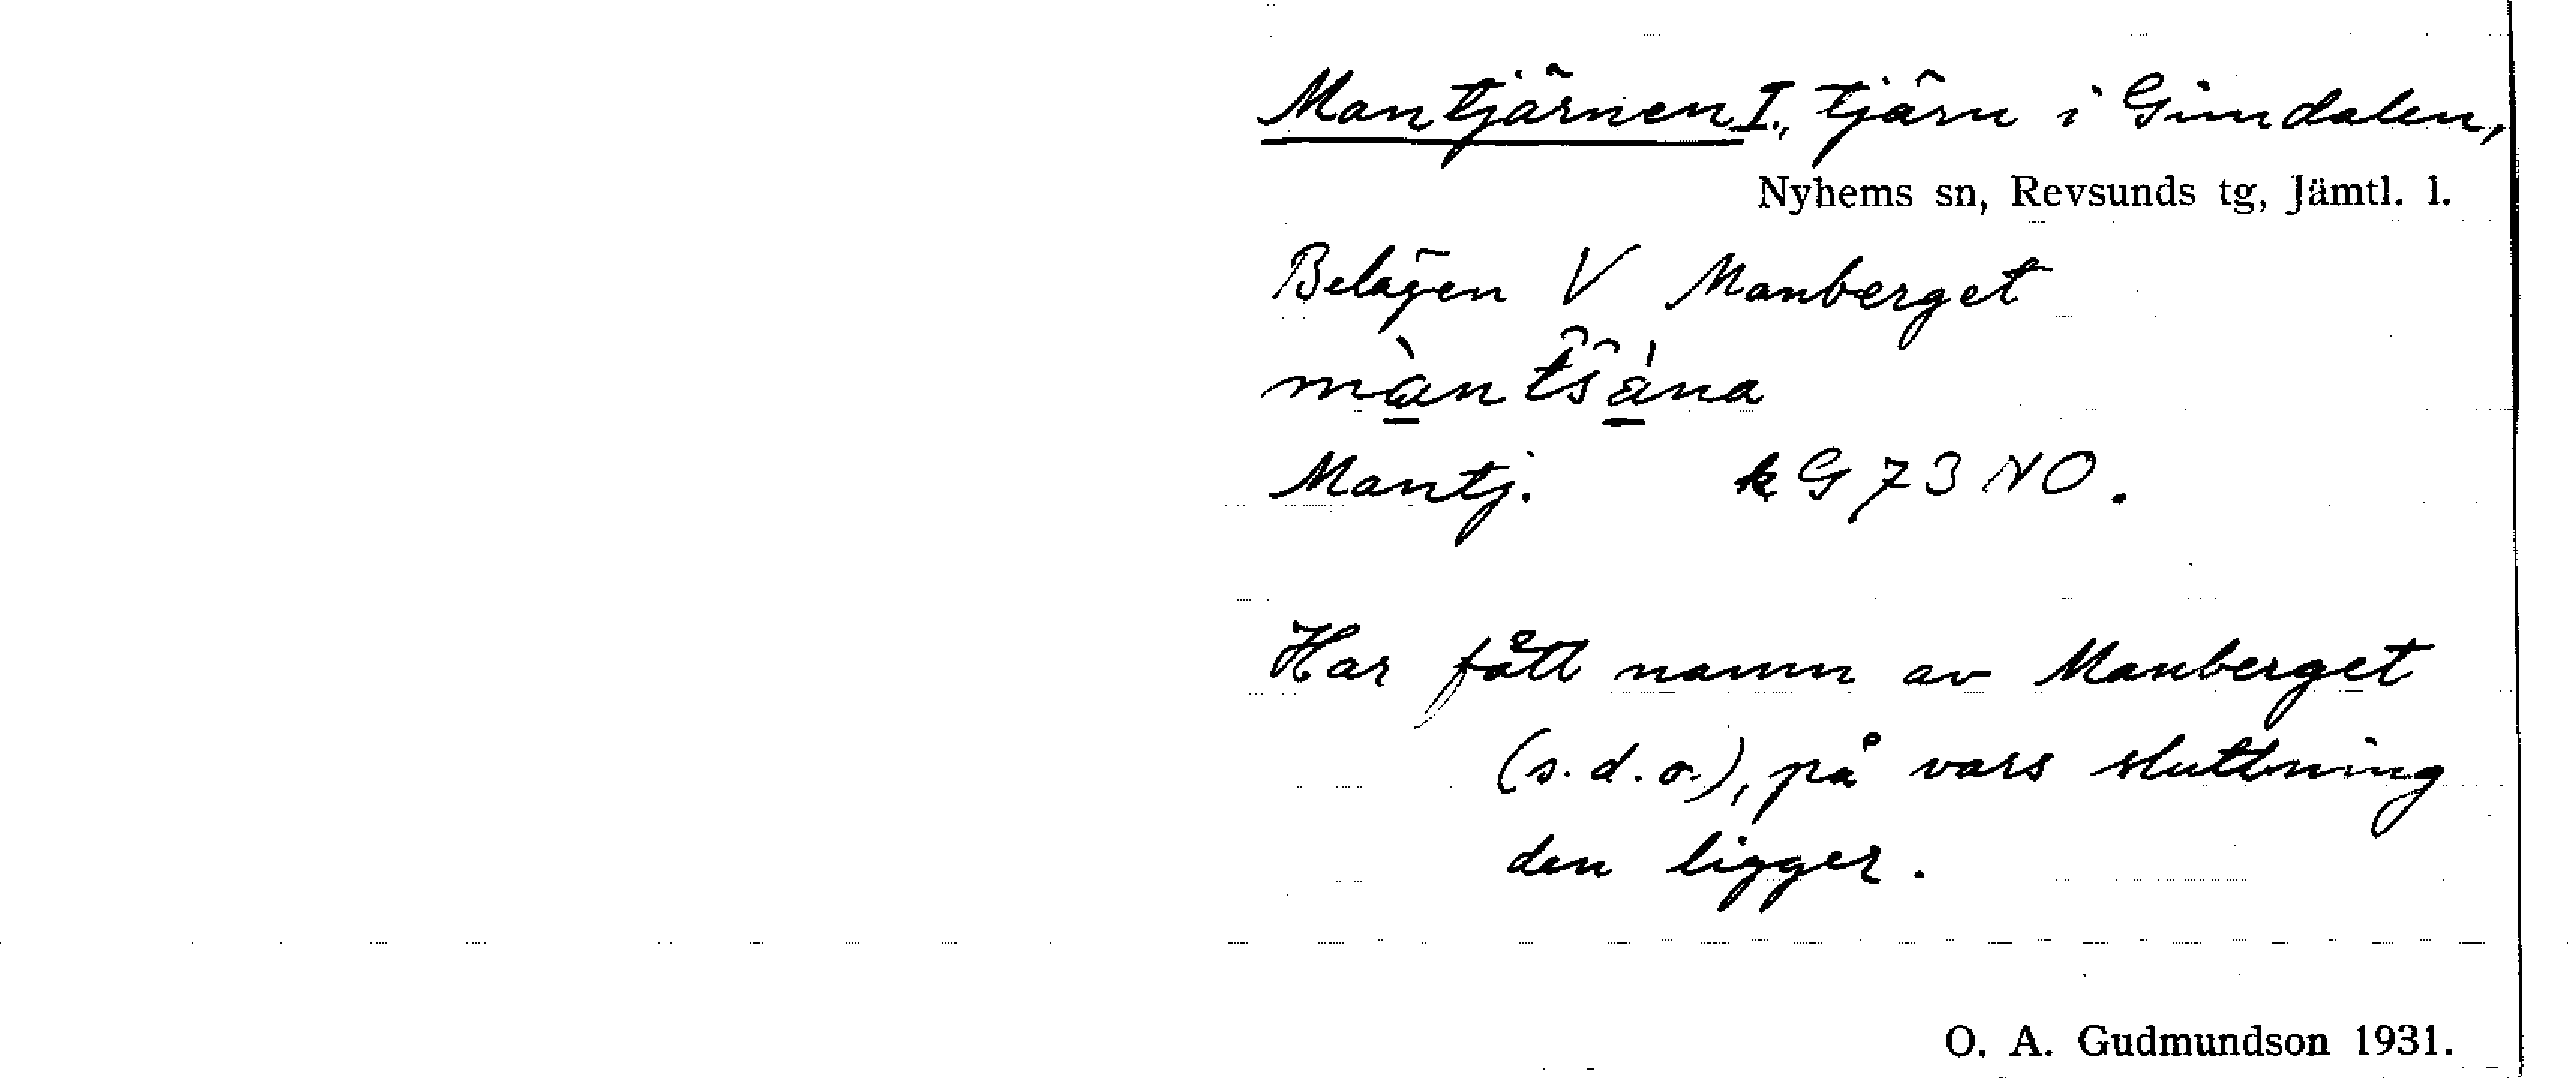 Mantjärnen I., tjärn i Gimdalen,
Nyhems sn, Revsunds tg, Jämtl. l.
Belägen V Manberget
Mantj. kG73NO.
Har fått namn av Manberget
(s.d.o.), på vars sluttning
den ligger.
O. A. Gudmundson 1931.